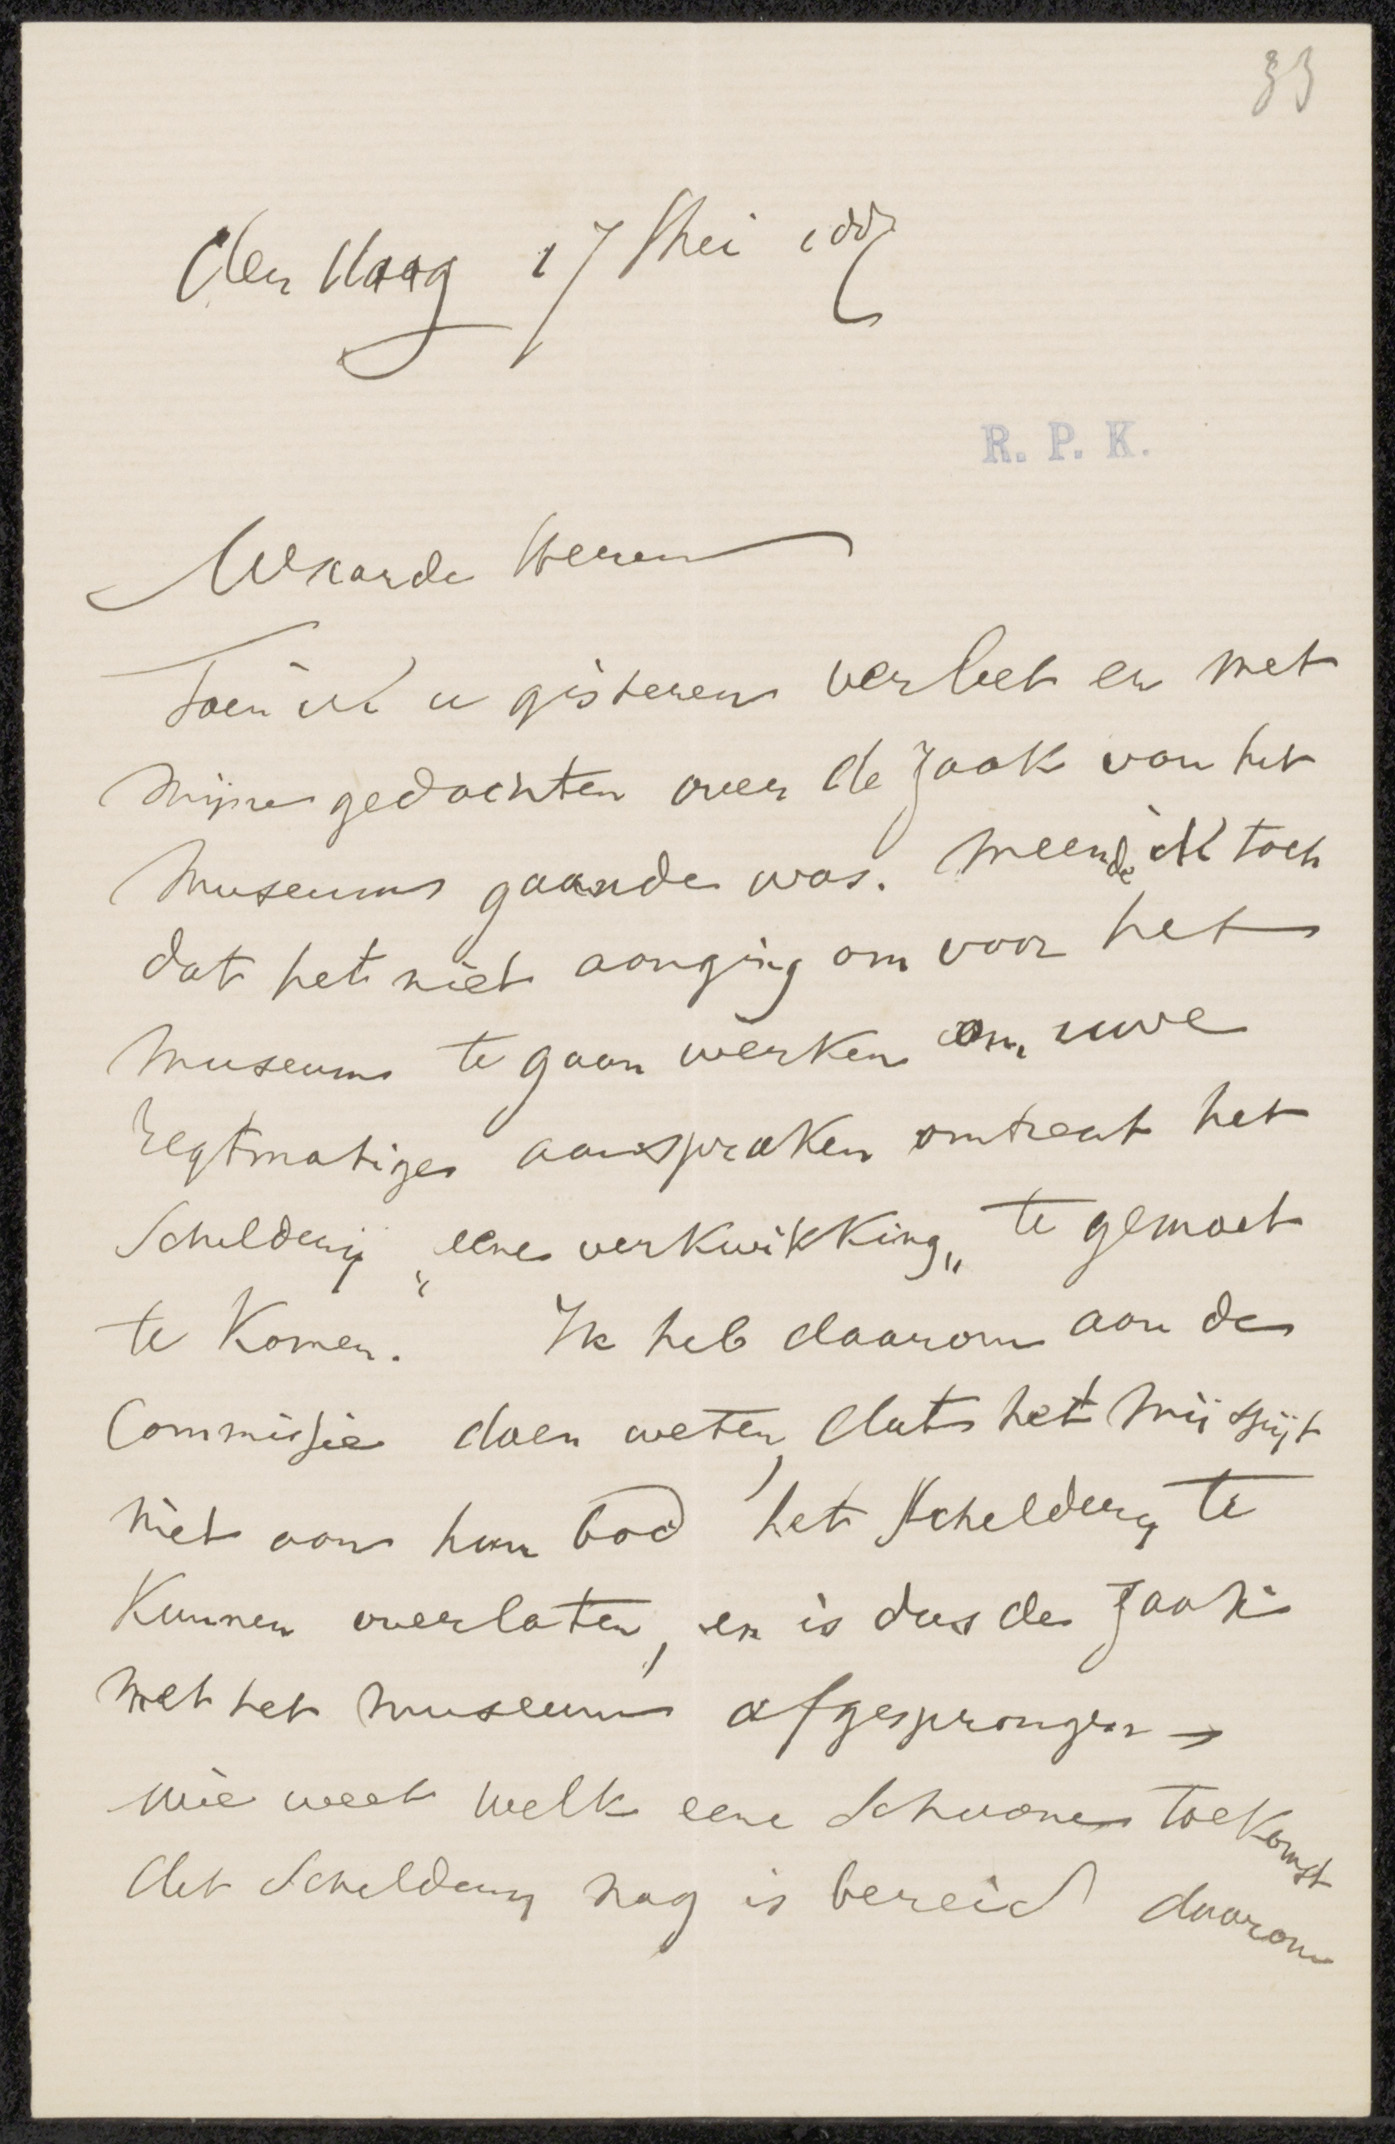 33
den Haag 17 Mei 188
R. P. K.
Waarde Heeren
Toen ik u gisteren verliet en met
mijne gedachten over de zaak van het
Museum gaande was. meende ik toch
dat het niet aanging om voor het
Museum te gaan werken om uwe
regtmatige aanspraken omtrent het
Schilderij "eene verkwikking„ te gemoet
te komen. Ik heb daarom aan de
Commissie doen weten, dat het mij spijt
niet aan hun bod het schilderij te
kunnen overlaten, en is dus de zaak
met het museum afgesprongen →
wie weet welk eene schoone toekomst
dit Schilderij nog is bereid daarom